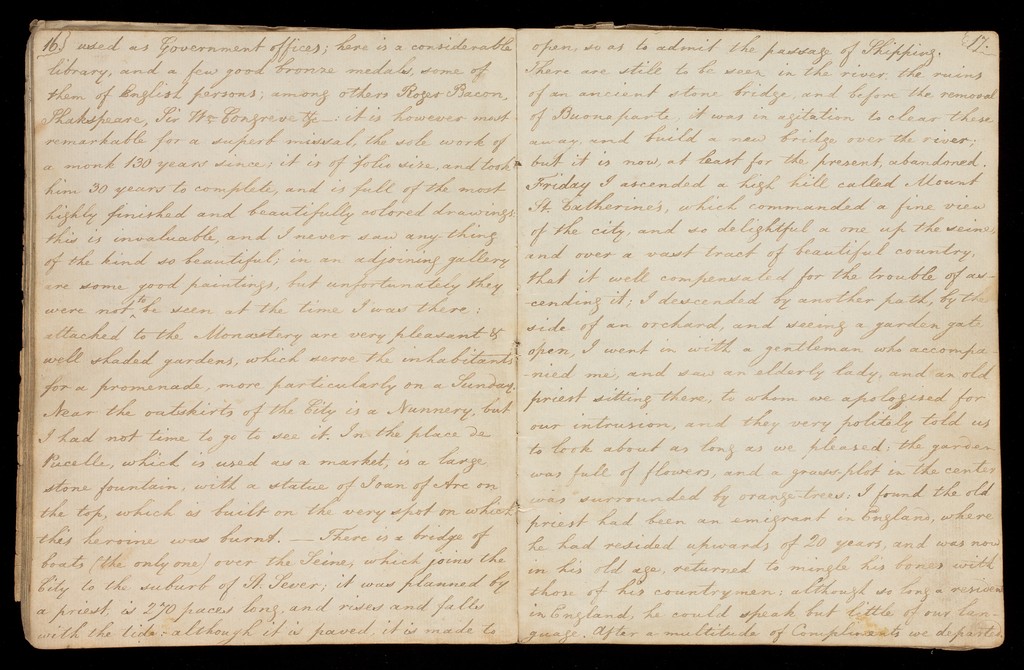 16} used as Government offices; here is a considerable
library, and a few good bronze medals, some of
them of English persons; among others Roger Bacon,
Shakspeare, Sir Wm Congreve &c—: it is however most
remarkable for a superb missal, the sole work of
a monk 130 years since; it is of folio size, and took
him 30 years to complete, and is full of the most
highly finished and beautifully colored drawings
this is invaluable, and I never saw any thing
of the kind so beautiful; in an adjoining gallery
are some good paintings, but unfortunately they
were not to be seen at the time I was there:
attached to the Monastery are very pleasant &
well shaded gardens, which serve the inhabitants
for a promenade, more particularly on a Sunday.
Near the outskirts of the City is a Nunnery, but
I had not time to go to see it. In the place de
Pucelle, which is used as a market, is a large
stone fountain, with a statue of Joan of Arc on
the top, which is built on the very spot on which
this heroine was burnt. — There is a bridge of
boats (the only one) over the Seine, which joins the
City to the suburb of St. Sever; it was planned by
a priest, is 270 paces long, and rises and falls
with the tide: although it is paved, it is made to
{17.
open, so as to admit the passage of Shipping.
There are still to be seen in the river, the ruins
of an ancient stone bridge, and before the removal
of Buonaparte, it was in agitation to clear these
away, and build a new bridge over the river;
but it is now, at least for the present, abandoned.
Friday I ascended a high hill called Mount
St. Catherine's, which commanded a fine view
of the city, and so delightful a one up the seine,
and over a vast tract of beautiful country,
that it well compensated for the trouble of as-
cending it; I descended by another path, by the
side of an orchard, and seeing a garden gate
open, I went in with a gentleman who accompa-
-nied me, and saw an elderly lady, and an old
priest sitting there, to whom we apologised for
our intrusion, and they very politely told us
to look about as long as we pleased: the garden
was full of flowers, and a grass-plot in the center
was surrounded by orange-trees: I found the old
priest had been an emigrant in England, where
he had resided upwards of 20 years, and was now
in his old age, returned to mingle his bones with
those of his countrymen: although so long a resident
in England, he could speak but little of our lan-
guage. After a multitude of Compliments we departed